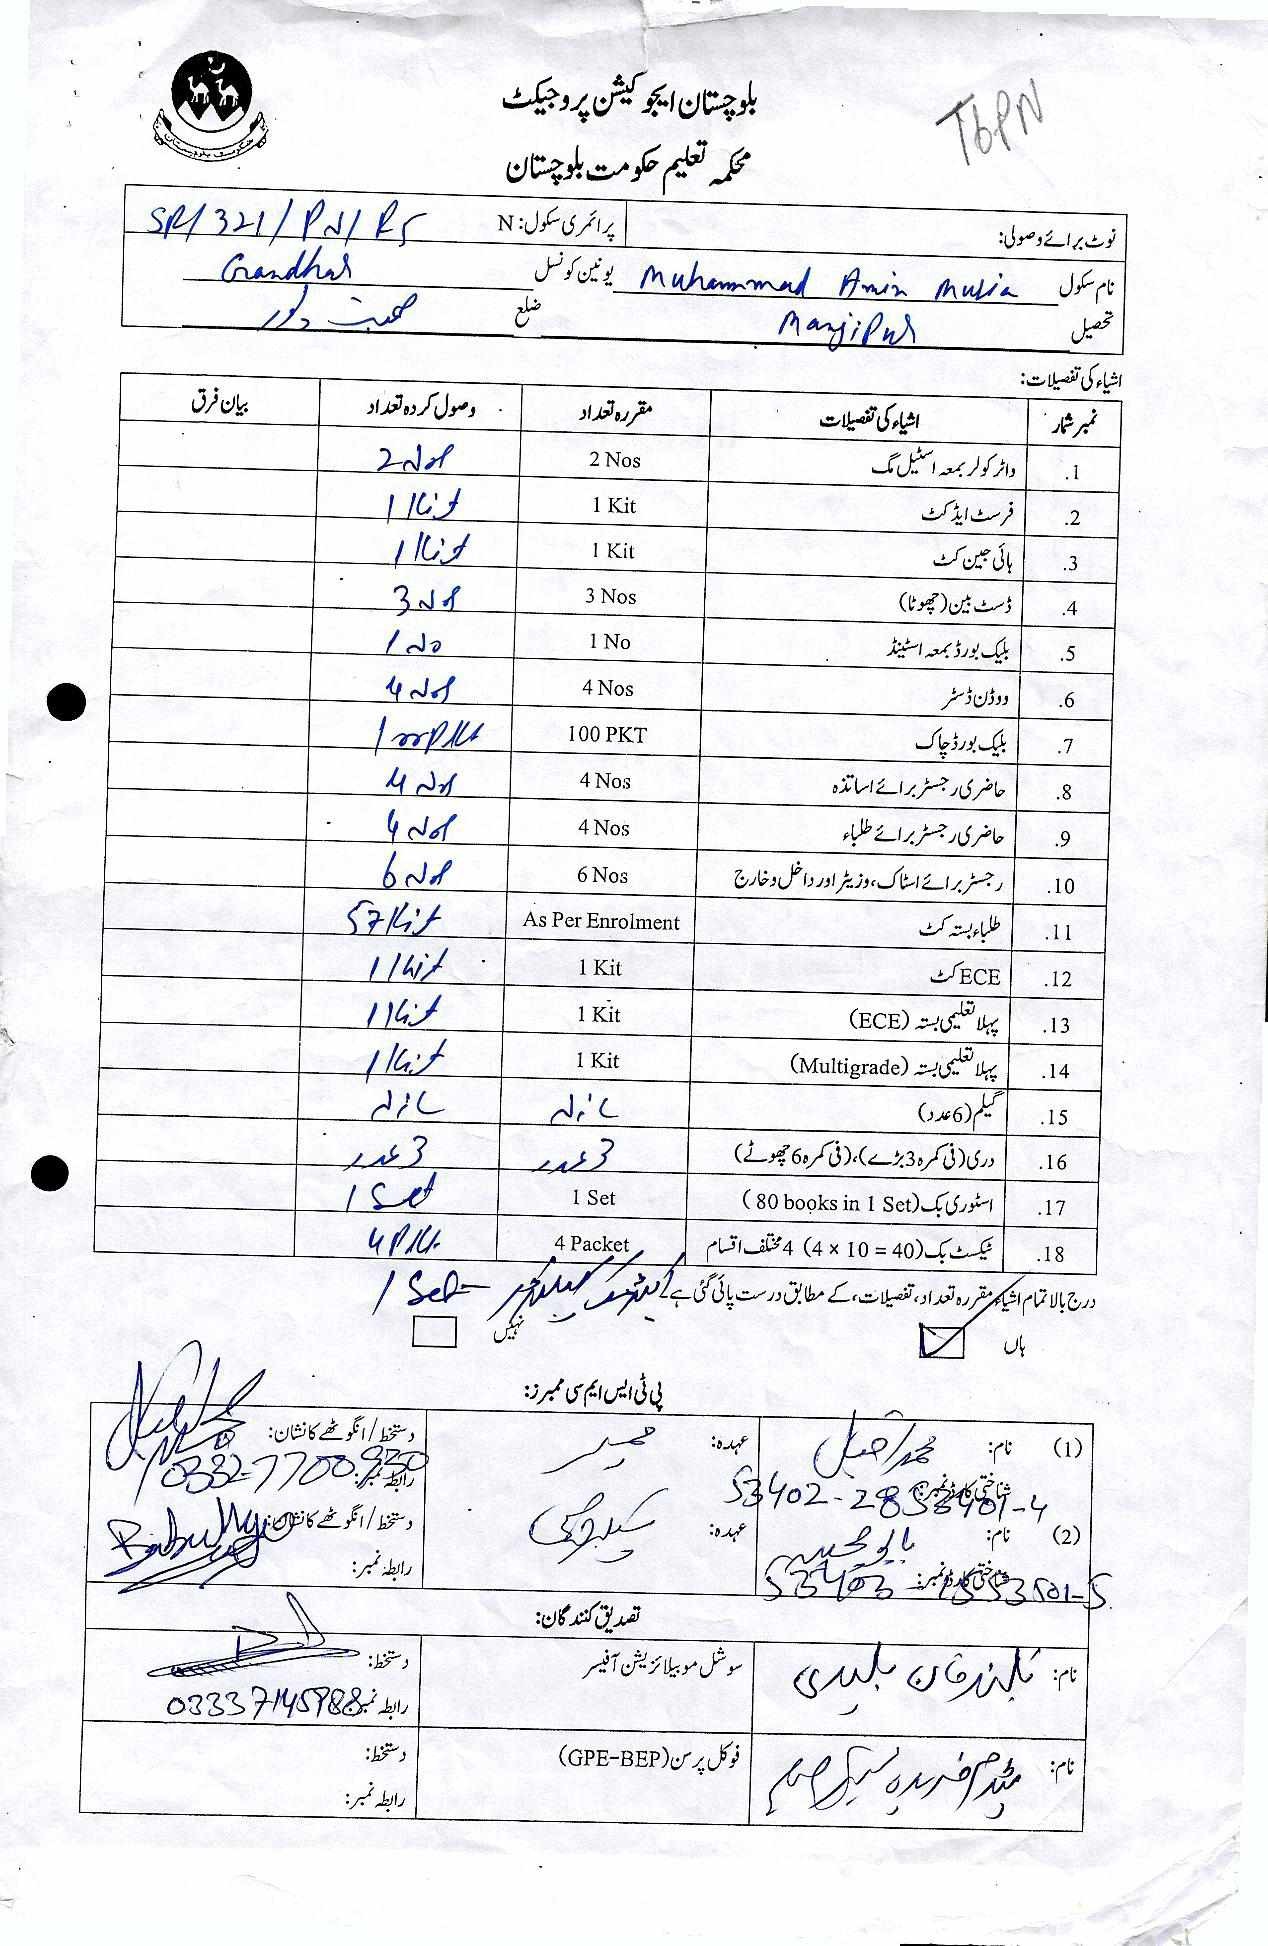 بلوچستان ایجوکیشن پروجیکٹ
TGPN
محکمہ تعلیم حکومت بلوچستان
نوٹ برائے وصولی: پرائمری سکول: N SR/321/PN/RS
نام سکول Muhammad Amin Musia یونین کونسل Grandhal
تحصیل Manjipur ضلع صحبت پور
اشیاء کی تفصیلات:
نمبر شمار اشیاء کی تفصیلات مقررہ تعداد وصول کردہ تعداد بیان فرق
1. واٹر کولر بمعہ اسٹیل مگ 2 Nos 2 Nos
2. فرسٹ ایڈ کٹ 1 Kit 1 Kit
3. ہائی جین کٹ 1 Kit 1 Kit
4. ڈسٹ بین (چھوٹا) 3 Nos 3 Nos
5. بلیک بورڈ بمعہ اسٹینڈ 1 No 1 No
6. ووڈن ڈسٹر 4 Nos 4 Nos
7. بلیک بورڈ چاک 100 PKT 100 PKt
8. حاضری رجسٹر برائے اساتذہ 4 Nos 4 Nos
9. حاضری رجسٹر برائے طلباء 4 Nos 4 Nos
10. رجسٹر برائے اسٹاک، وزیٹر اور داخل و خارج 6 Nos 6 Nos
11. طلباء بستہ کٹ As Per Enrolment 57 Kit
12. ECE کٹ 1 Kit 1 Kit
13. پہلا تعلیمی بستہ (ECE) 1 Kit 1 Kit
14. پہلا تعلیمی بستہ (Multigrade) 1 Kit 1 Kit
15. گیلم (6 عدد)
16. دری (فی کمرہ 3 بڑے)، (فی کمرہ 6 چھوٹے) 3 عدد 3 عدد
17. اسٹوری بک (80 books in 1 Set) 1 Set 1 Set
18. ٹیکسٹ بک (4 × 10 = 40) 4 مختلف اقسام 4 Packet 4 PKt
درج بالا تمام اشیاء مقررہ تعداد، تفصیلات، کے مطابق درست پائی گئی ہے 1 Set
ہاں نہیں
پی ٹی ایس ایم سی ممبرز:
(1) نام: محمد اقبال عہدہ: ممبر دستخط / انگوٹھے کا نشان:
شناختی کارڈ نمبر: 53402-2853401-4 رابطہ نمبر: 0332-7700930
(2) نام: عہدہ: دستخط / انگوٹھے کا نشان:
شناختی کارڈ نمبر: 53403-1553501-5 رابطہ نمبر:
تصدیق کنندگان:
نام: سوشل موبیلائزیشن آفیسر دستخط:
رابطہ نمبر: 03337145988
نام: میڈم فریدہ فوکل پرسن (GPE-BEP) دستخط:
رابطہ نمبر: